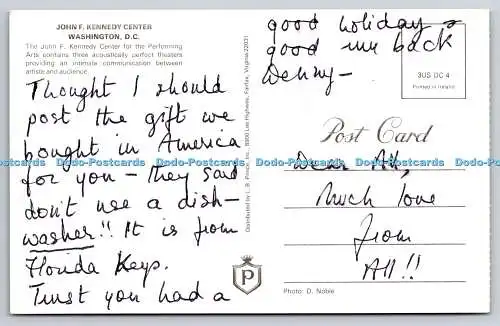 JOHN F. KENNEDY CENTER
WASHINGTON, D.C.
The John F. Kennedy Center for the Performing
Arts contains three acoustically perfect theaters
providing an intimate communication between
artists and audience.
Thought I should
post the gift we
bought in America
for you – they said
don't use a dish-
washer!! It is from
Florida Keys.
Trust you had a
good holiday &
good me back
Distributed by L. B. Prince, Inc., Lee Highway, Fairfax, Virginia 22031
P
3US DC 4
Printed in Ireland
Post Card
Dear All,
Much love
from
All!!
Photo: D. Noble
Dodo-Postcards Dodo-Postcards Dodo-Postcards Dodo-Postcards Dodo-Postcards Dodo-Postcards